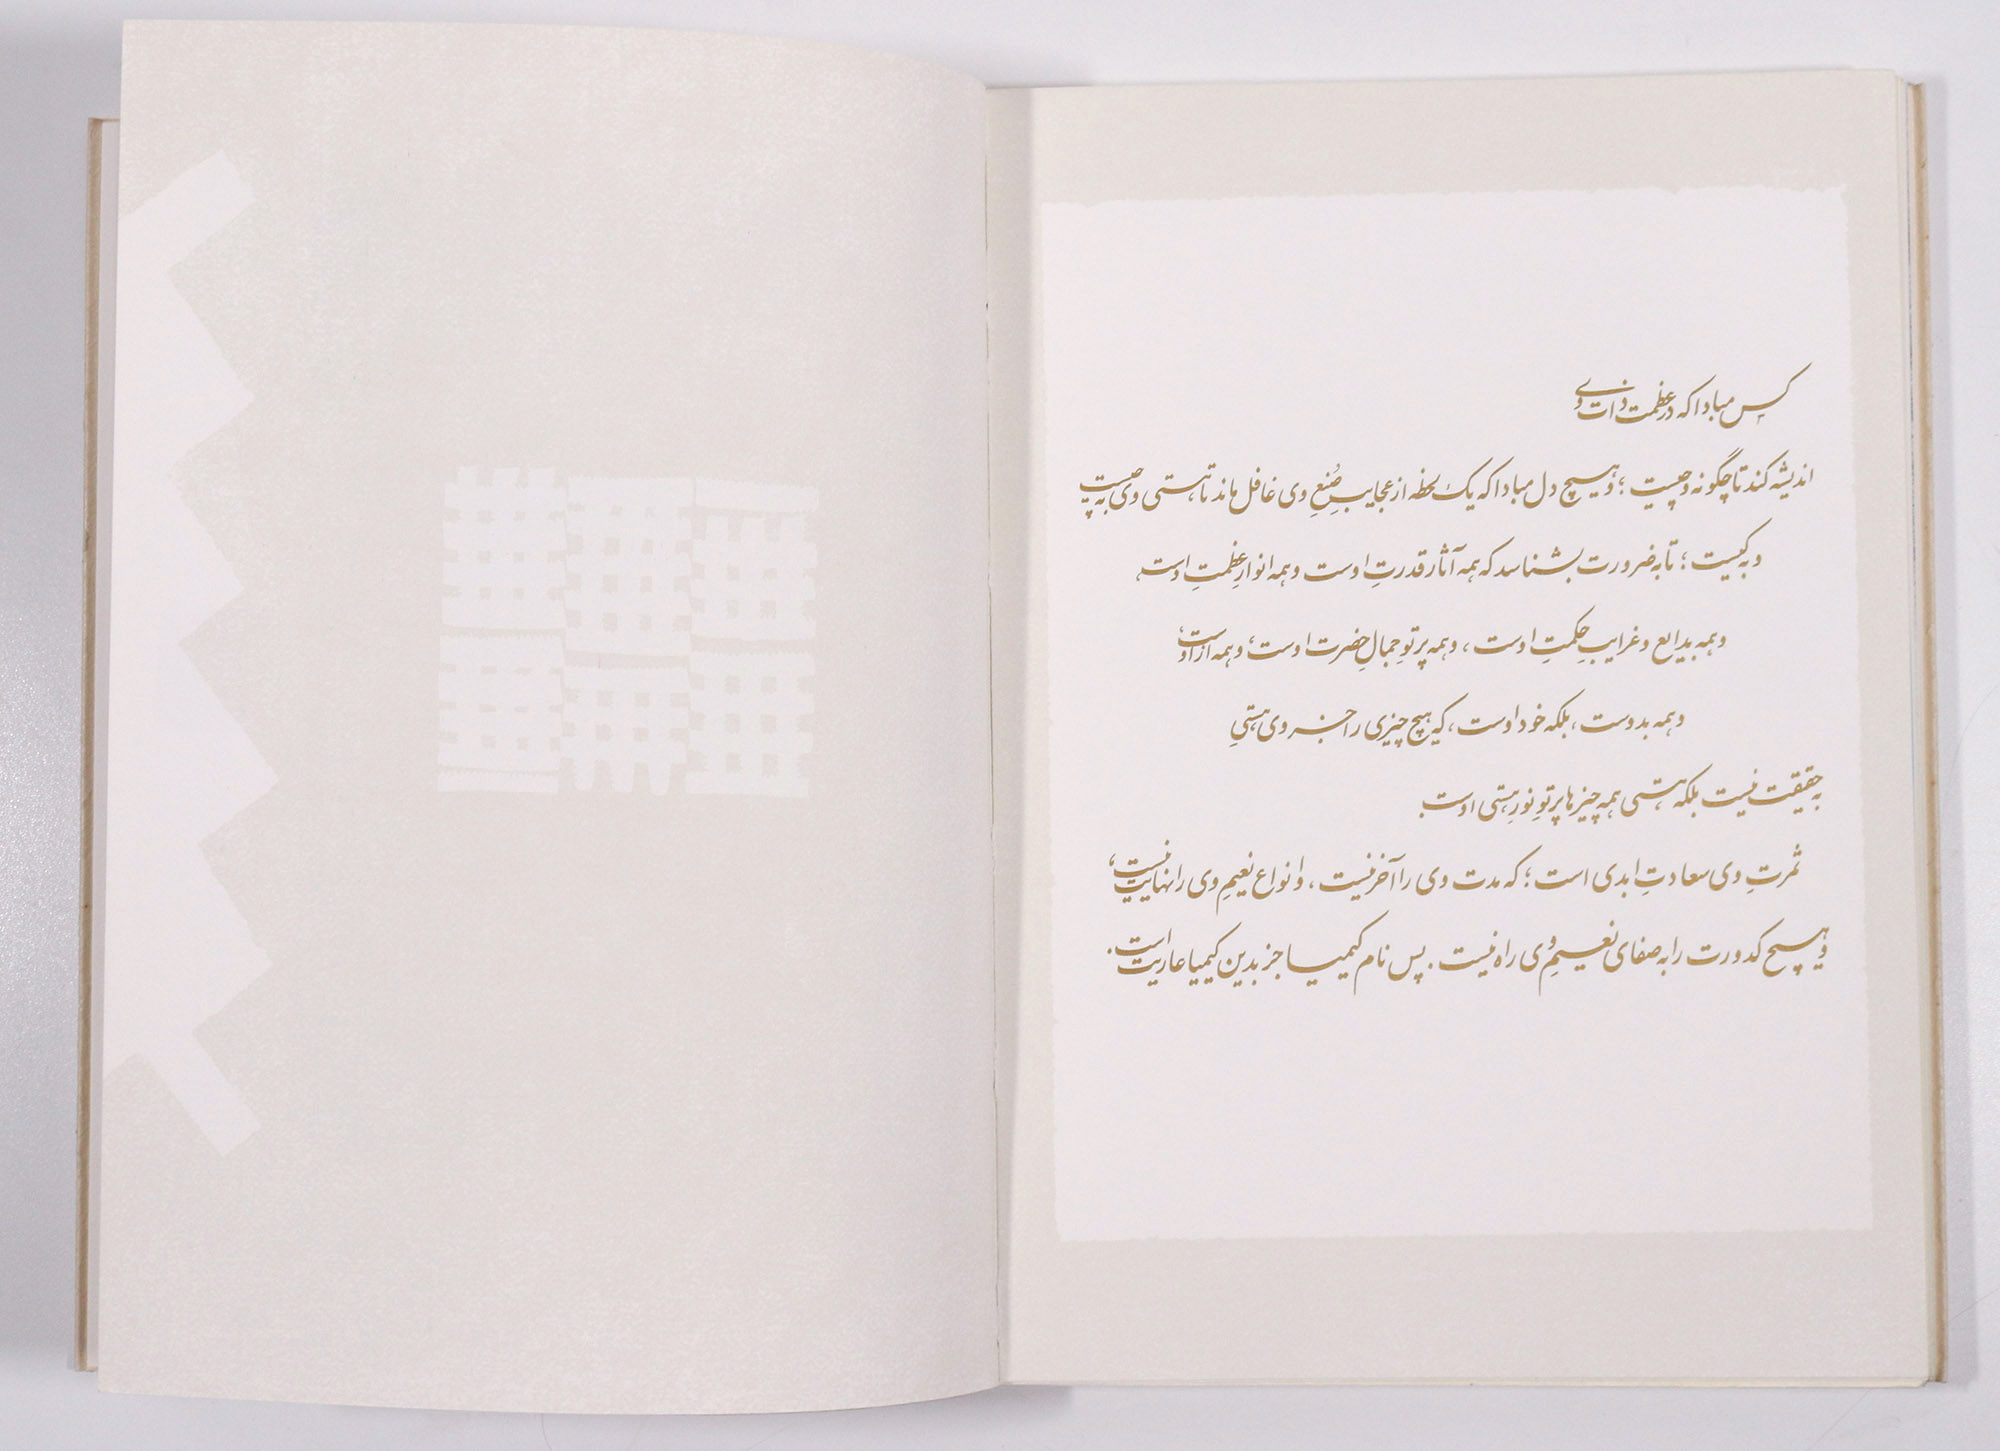 کس مبادا که در عظمت ذات وی
اندیشه کند تا چگونه و چیست؛ و هیچ دل مبادا که یک لحظه از عجایبِ صُنعِ وی غافل ماند تا هستی وی به چیست
و به کیست؛ تا به ضرورت بشناسد که همه آثار قدرتِ اوست و همه انوارِ عظمتِ اوست،
و همه بدایع و غرایبِ حکمتِ اوست، و همه پرتوِ جمالِ حضرت اوست، و همه از اوست،
و همه بدوست، بلکه خود اوست، که هیچ چیزی را جز وی هستیِ
به حقیقت نیست بلکه هستی همه چیزها پرتوِ نورِ هستی اوست.
ثمرتِ وی سعادتِ ابدی است؛ که مدت وی را آخر نیست، و انواع نعیمِ وی را نهایت نیست،
و هیچ کدورت را به صفای نعیمِ وی راه نیست. پس نام کیمیا جز بدین کیمیا عاریت است.